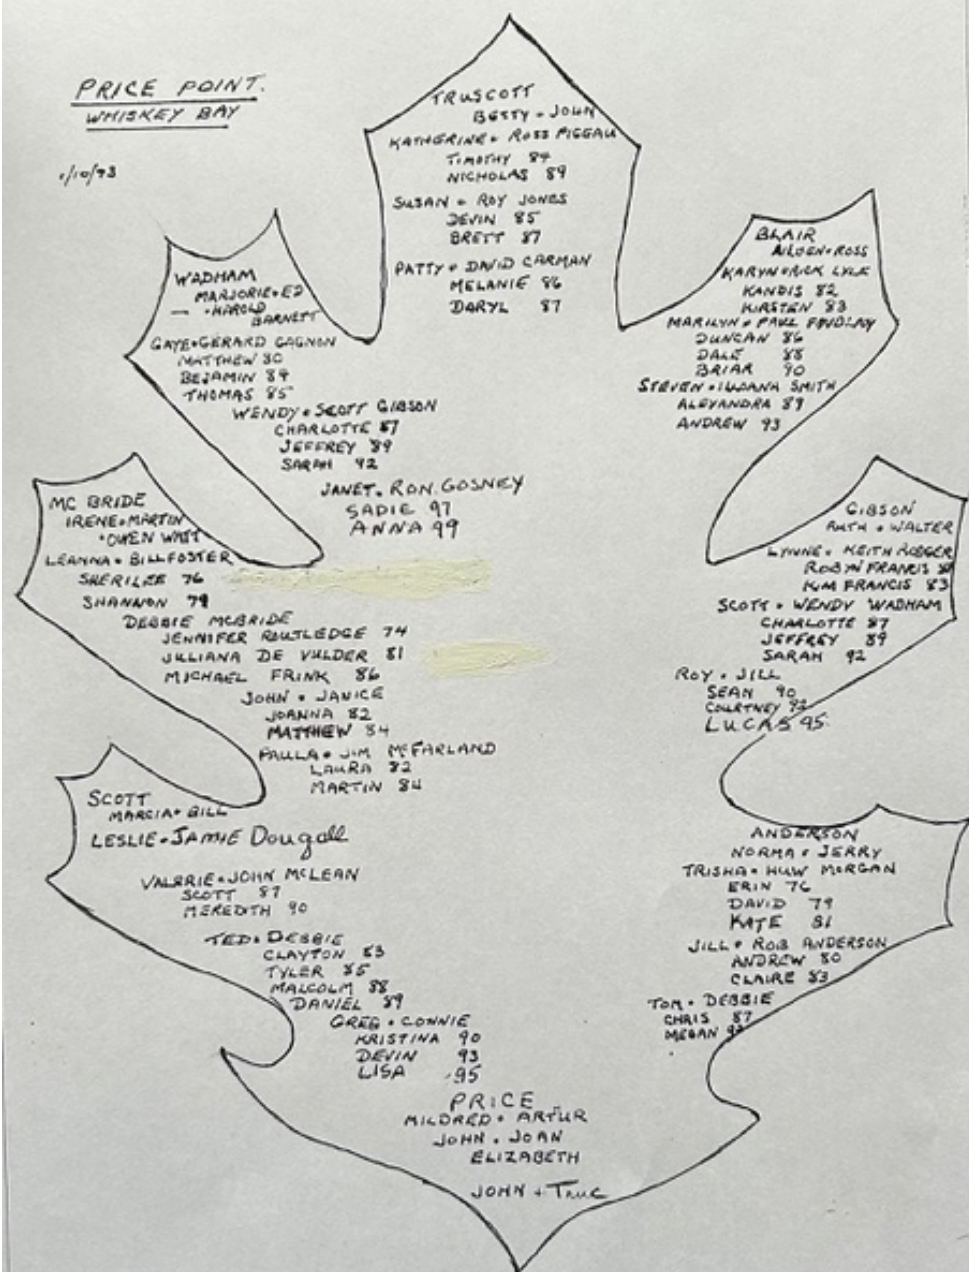 PRICE POINT.
WHISKEY BAY
1/10/93
TRUSCOTT
BETTY + JOHN
KATHERINE + ROSS PIGEAU
TIMOTHY 84
NICHOLAS 89
SUSAN + ROY JONES
DEVIN 85
BRETT 87
PATTY + DAVID CARMAN
MELANIE 86
DARYL 87
WADHAM
MARJORIE + ED
— + HAROLD
BARNETT
GAYE + GERARD GAGNON
MATTHEW 80
BEJAMIN 84
THOMAS 85
WENDY + SCOTT GIBSON
CHARLOTTE 87
JEFFREY 89
SARAH 92
JANET + RON GOSNEY
SADIE 97
ANNA 99
BLAIR
AILDEN + ROSS
KARYN + RICK LYLE
KANDIS 82
KIRSTEN 83
MARILYN + PAUL FINDLAY
DUNCAN 86
DALE 88
BRIAR 90
STEVEN + SMITH
ALEXANDRA 89
ANDREW 93
MC BRIDE
IRENE + MARTIN
+ OWEN WATT
LEANNA + BILL FOSTER
SHERILEE 76
SHANNON 79
DEBBIE MCBRIDE
JENNIFER ROUTLEDGE 74
JULIANA DE VULDER 81
MICHAEL FRINK 86
JOHN + JANICE
JOANNA 82
MATTHEW 84
PAULA + JIM McFARLAND
LAURA 82
MARTIN 84
GIBSON
RUTH + WALTER
LYNNE + KEITH ROEGER
ROBYN FRANCIS
KIM FRANCIS 83
SCOTT + WENDY WADHAM
CHARLOTTE 87
JEFFREY 89
SARAH 92
ROY + JILL
SEAN 90
COURTNEY 92
LUCAS 95
SCOTT
MARCIA + BILL
LESLIE + JAMIE Dougall
VALARIE + JOHN MCLEAN
SCOTT 87
MEREDITH 90
TED + DEBBIE
CLAYTON 83
TYLER 85
MALCOLM 88
DANIEL 89
GREG + CONNIE
KRISTINA 90
DEVIN 93
LISA 95
ANDERSON
NORMA + JERRY
TRISHA + HUW MORGAN
ERIN 76
DAVID 79
KATE 81
JILL + ROB ANDERSON
ANDREW 80
CLAIRE 83
TOM + DEBBIE
CHRIS 87
MEGAN
PRICE
MILDRED + ARTUR
JOHN + JOAN
ELIZABETH
JOHN + Truc